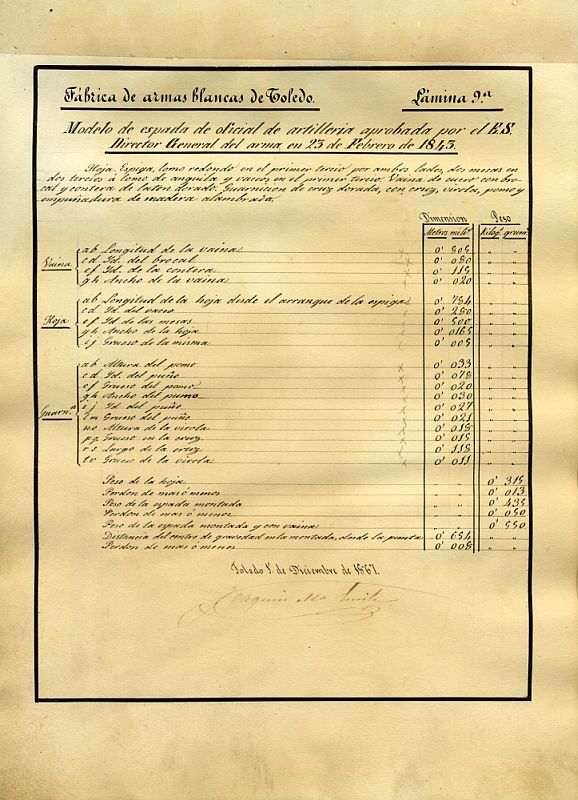 Fábrica de armas blancas de Toledo.
Lámina 9.a
Modelo de espada de oficial de artilleria aprobada por el E.S.
Director General del arma en 23 de Febrero de 1843.
Hoja. Espiga, lomo redondo en el primer tercio por ambos lados, dos mesas en
dos tercios á lomo de anguila y vacios en el primer tercio. Vaina de cuero con bro-
cal y contera de laton dorado. Guarnicion de cruz dorada, con cruz, virola, pomo y
empuñadura de madera alambrada.
Dimension Peso
Metros mils Kilog. gram.
Vaina
ab Longitud de la vaina 0' 805 " "
cd Id. del brocal 0' 080 " "
ef Id. de la contera 0' 115 " "
gh Ancho de la vaina 0' 020 " "
Hoja
ab Longitud de la hoja desde el arranque de la espiga 0' 784 " "
cd Id. del vaceo 0' 280 " "
ef Id de las mesas 0' 500 " "
gh Ancho de la hoja 0' 0165 " "
ij Grueso de la misma 0' 005 " "
Guarn.n
ab Altura del pomo 0' 033 " "
cd Id. del puño 0' 078 " "
ef Grueso del pomo 0' 020 " "
gh Ancho del pumo 0' 030 " "
ij Id del puño 0' 027 " "
lm Grueso del puño 0' 021 " "
no Altura de la virola 0' 018 " "
pq Grueso en la cruz 0' 015 " "
rs Largo de la cruz 0' 115 " "
tv Grueso de la virola 0' 011 " "
Peso de la hoja " " 0' 315
Perdon de mas ó menos " " 0' 013
Peso de la espada montada " " 0' 435
Perdon de mas ó menos " " 0' 050
Peso de la espada montada y con vaina " " 0' 550
Distancia del centro de gravedad en la montada, desde la punta 0' 654 " "
Perdon de mas ó menos 0' 008 " "
Toledo 1. de Diciembre de 1867.
Joaquin Ma